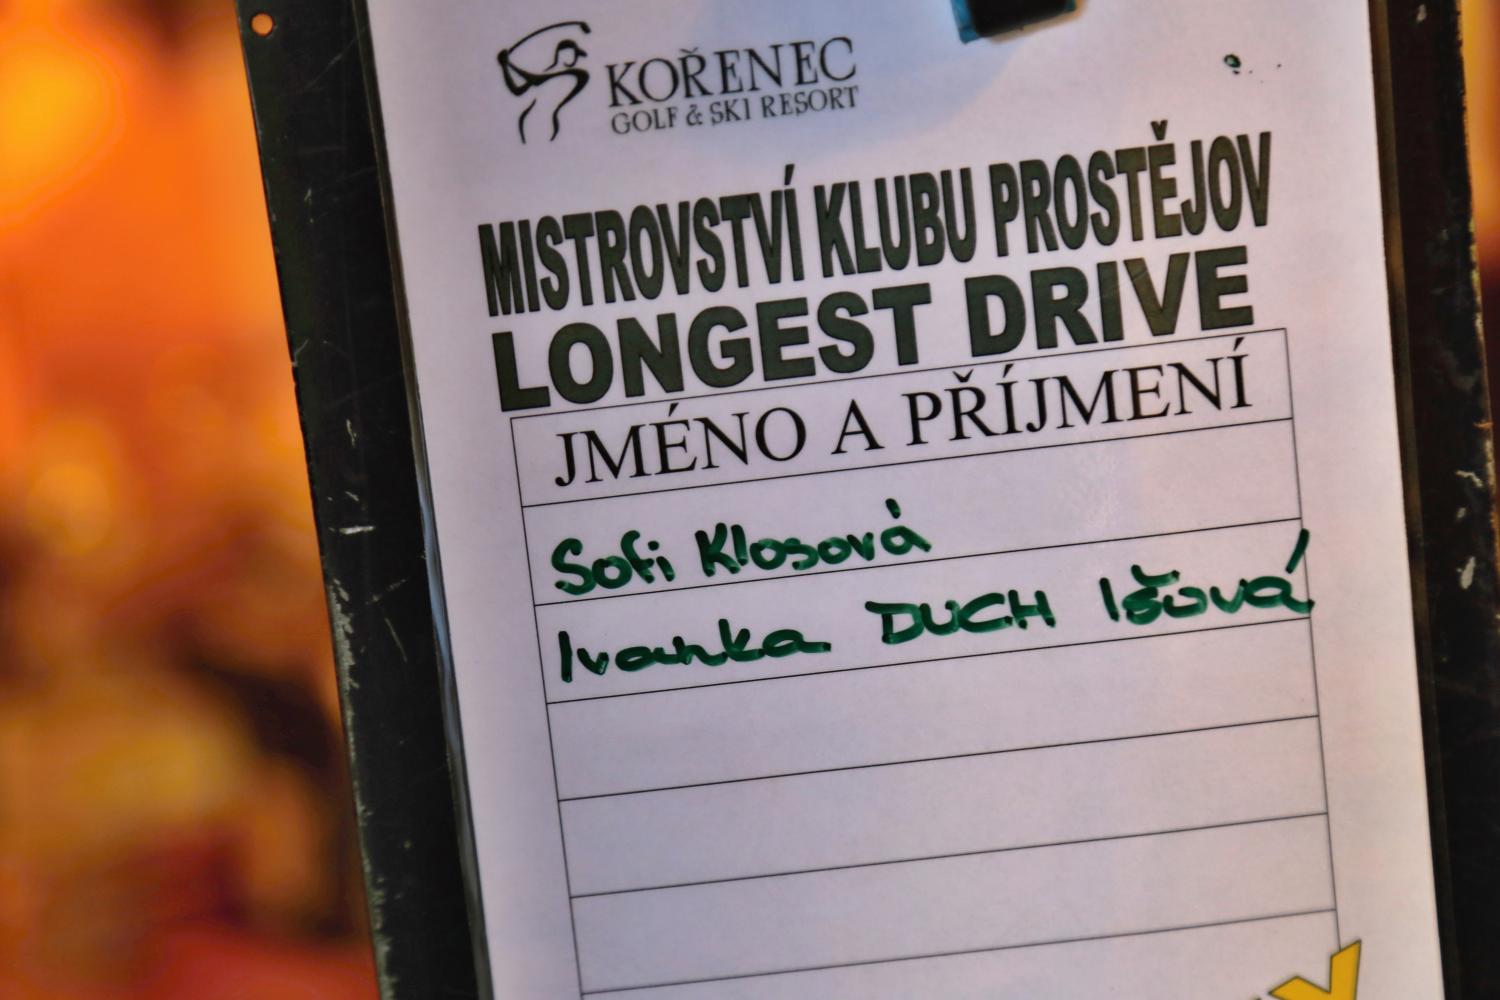 KOŘENEC
GOLF & SKI RESORT
MISTROVSTVÍ KLUBU PROSTĚJOV
LONGEST DRIVE
JMÉNO A PŘÍJMENÍ
Sofi Klosová
Ivanka DUCH Išová